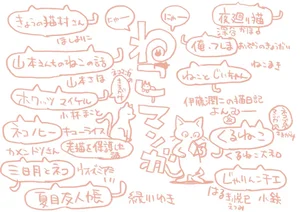 きょうの猫村さん
ほしよりこ
山本さんちのねこの話
山本さほ
ホワッツ マイケル
小林まこと
ネコノヒー
キューライス
カメントツさん
三日月とネコ
ウオズミアミ
夏目友人帳
緑川ゆき
にゃー
にゃー
ねこマンガ
夜廻り猫
深谷かほる
俺、つしま
おぷうのきょうだい
ねことじいちゃん
ねこまき
伊藤潤二の猫日記
よん&むー
くるねこ
くるねこ大和
じゃりン子チエ
はるき悦巳
小鉄